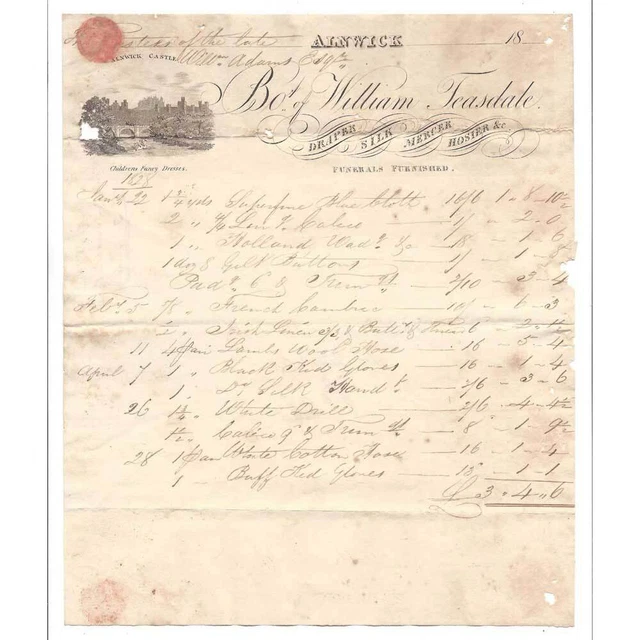 of the late ALNWICK 18
ALNWICK CASTLE Wm. Adams Esqre.
Bot. of William Teasdale.
DRAPER SILK MERCER HOSIER &c
Childrens Fancy Dresses. FUNERALS FURNISHED.
22 1 3/4 yds Superfine Blue Cloth 16/6 1 - 8 - 10½
2 " Calico 1/ - 2 - 0
1 " Holland &c 18 - 1 - 6
1 doz 8 Gilt Buttons 1/ - 1 - 8
& 2/10 - 3 - 4
Feby. 5 7/8 " French Cambric 10/ - 6 - 3
Irish Linen & 6
11 4 pair Lambs Wool Hose 16 - 5 - 4
April 7 1 " Black Kid Gloves 16 - 1 - 4
1 " Do. Silk Handf. 3/6 - 3 - 6
26 White Drill 2/6 - 4 - 4½
1½ " Calico & 8 - 1 - 9½
28 1 pair White Cotton Hose 16 - 1 - 4
1 Buff Kid Gloves 13 - 1 - 1
£ 3 " 4 " 6